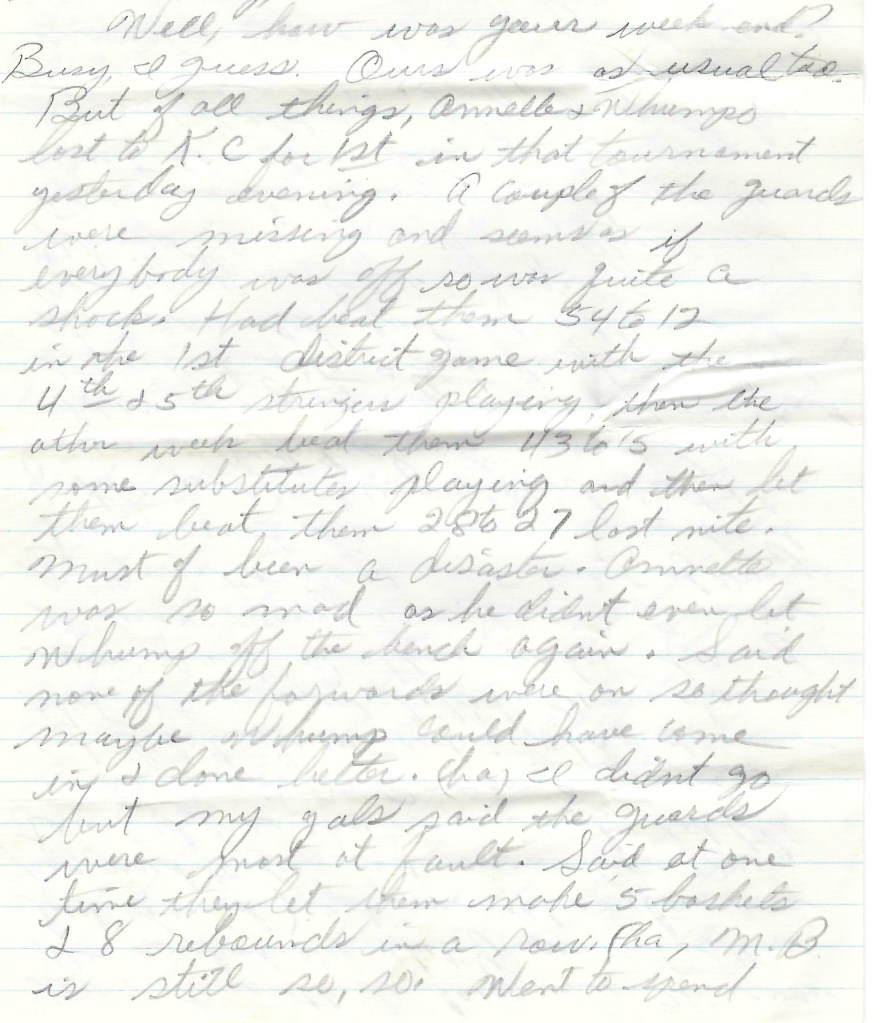 Well, how was your week end?
Busy, I guess. Ours was as usual too.
But of all things, Annette & Whump
lost to K.C for 1st in that tournament
yesterday evening. A couple of the guards
were missing and seems as if
everybody was off so was quite a
shock. Had beat them 54 to 12
in the 1st district game with the
4th & 5th stringers playing, then the
other week beat them 43 to 15 with
some substitutes playing and then let
them beat them 28 to 27 last nite.
Must of been a disaster. Annette
was so mad as he didn't even let
Whump off the bench again. Said
none of the forwards were on so thought
maybe Whump could have come
in & done better. (ha) I didnt go
but my gals said the guards
were most at fault. Said at one
time they let them make 5 baskets
& 8 rebounds in a row. (ha, M.B.
is still so, so. Went to spend